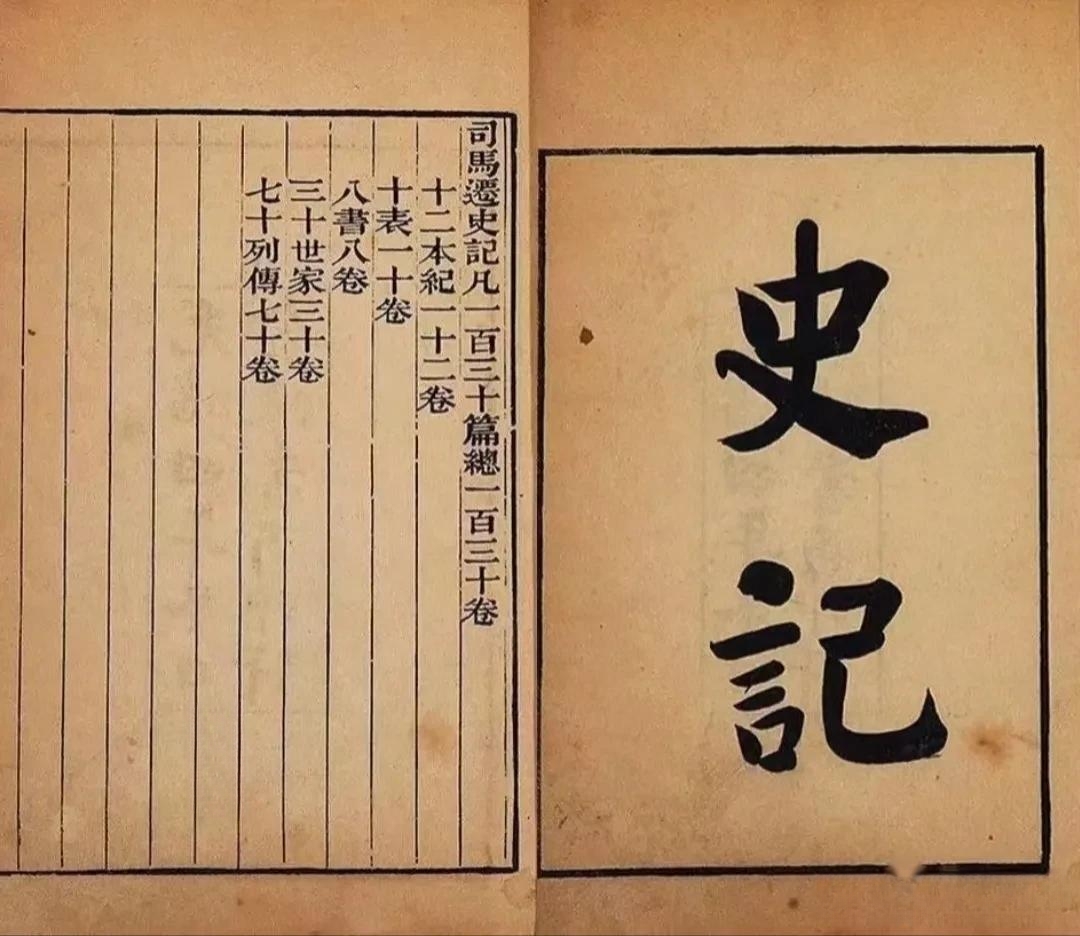 史記
司馬遷史記凡一百三十篇總一百三十卷
十二本紀一十二卷
十表一十卷
八書八卷
三十世家三十卷
七十列傳七十卷